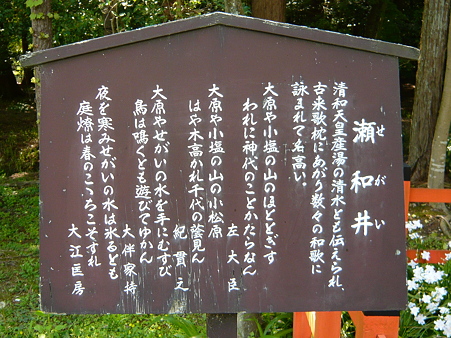 瀬和井
せがい
清和天皇産湯の清水とも伝えられ、
古来歌枕にあがう数々の和歌に
詠まれて名高い。
大原や小塩の山のほととぎす
われに神代のことかたらなん
左大臣
大原や小塩の山の小松原
はや木高かれ千代の蔭見ん
紀貫之
大原やせがいの水を手にむすび
鳥は鳴くとも遊びてゆかん
大伴家持
夜を寒みせがいの水は氷るとも
庭燎は春のこゝちこそすれ
大江匡房